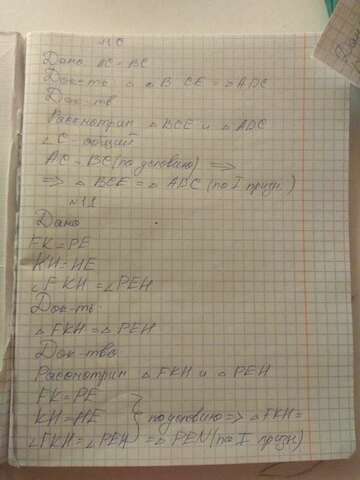 №6
Дано AC = BC
Док-ть △ BCE = △ADC
Док-тв
Рассмотрим △BCE и △ADC
∠C - общий
AC = BC (по условию) ⇒
⇒ △ BCE = △ ADC (по I призн.)
№11
Дано
FK = PE
KH = HE
∠FKH = ∠PEH
Док-ть
△FKH = △PEH
Док-тво
Рассмотрим △ FKH и △ PEH
FK = PE
KH = HE } по условию ⇒ △FKH =
∠FKH = ∠PEH = △PEH (по I призн)